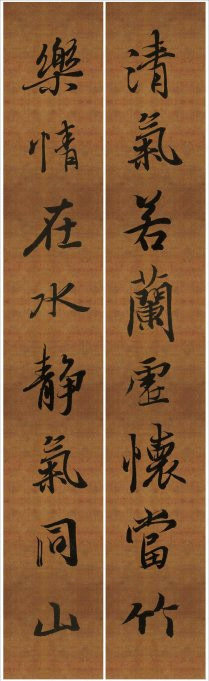 清氣若蘭虛懷當竹
樂情在水靜氣同山